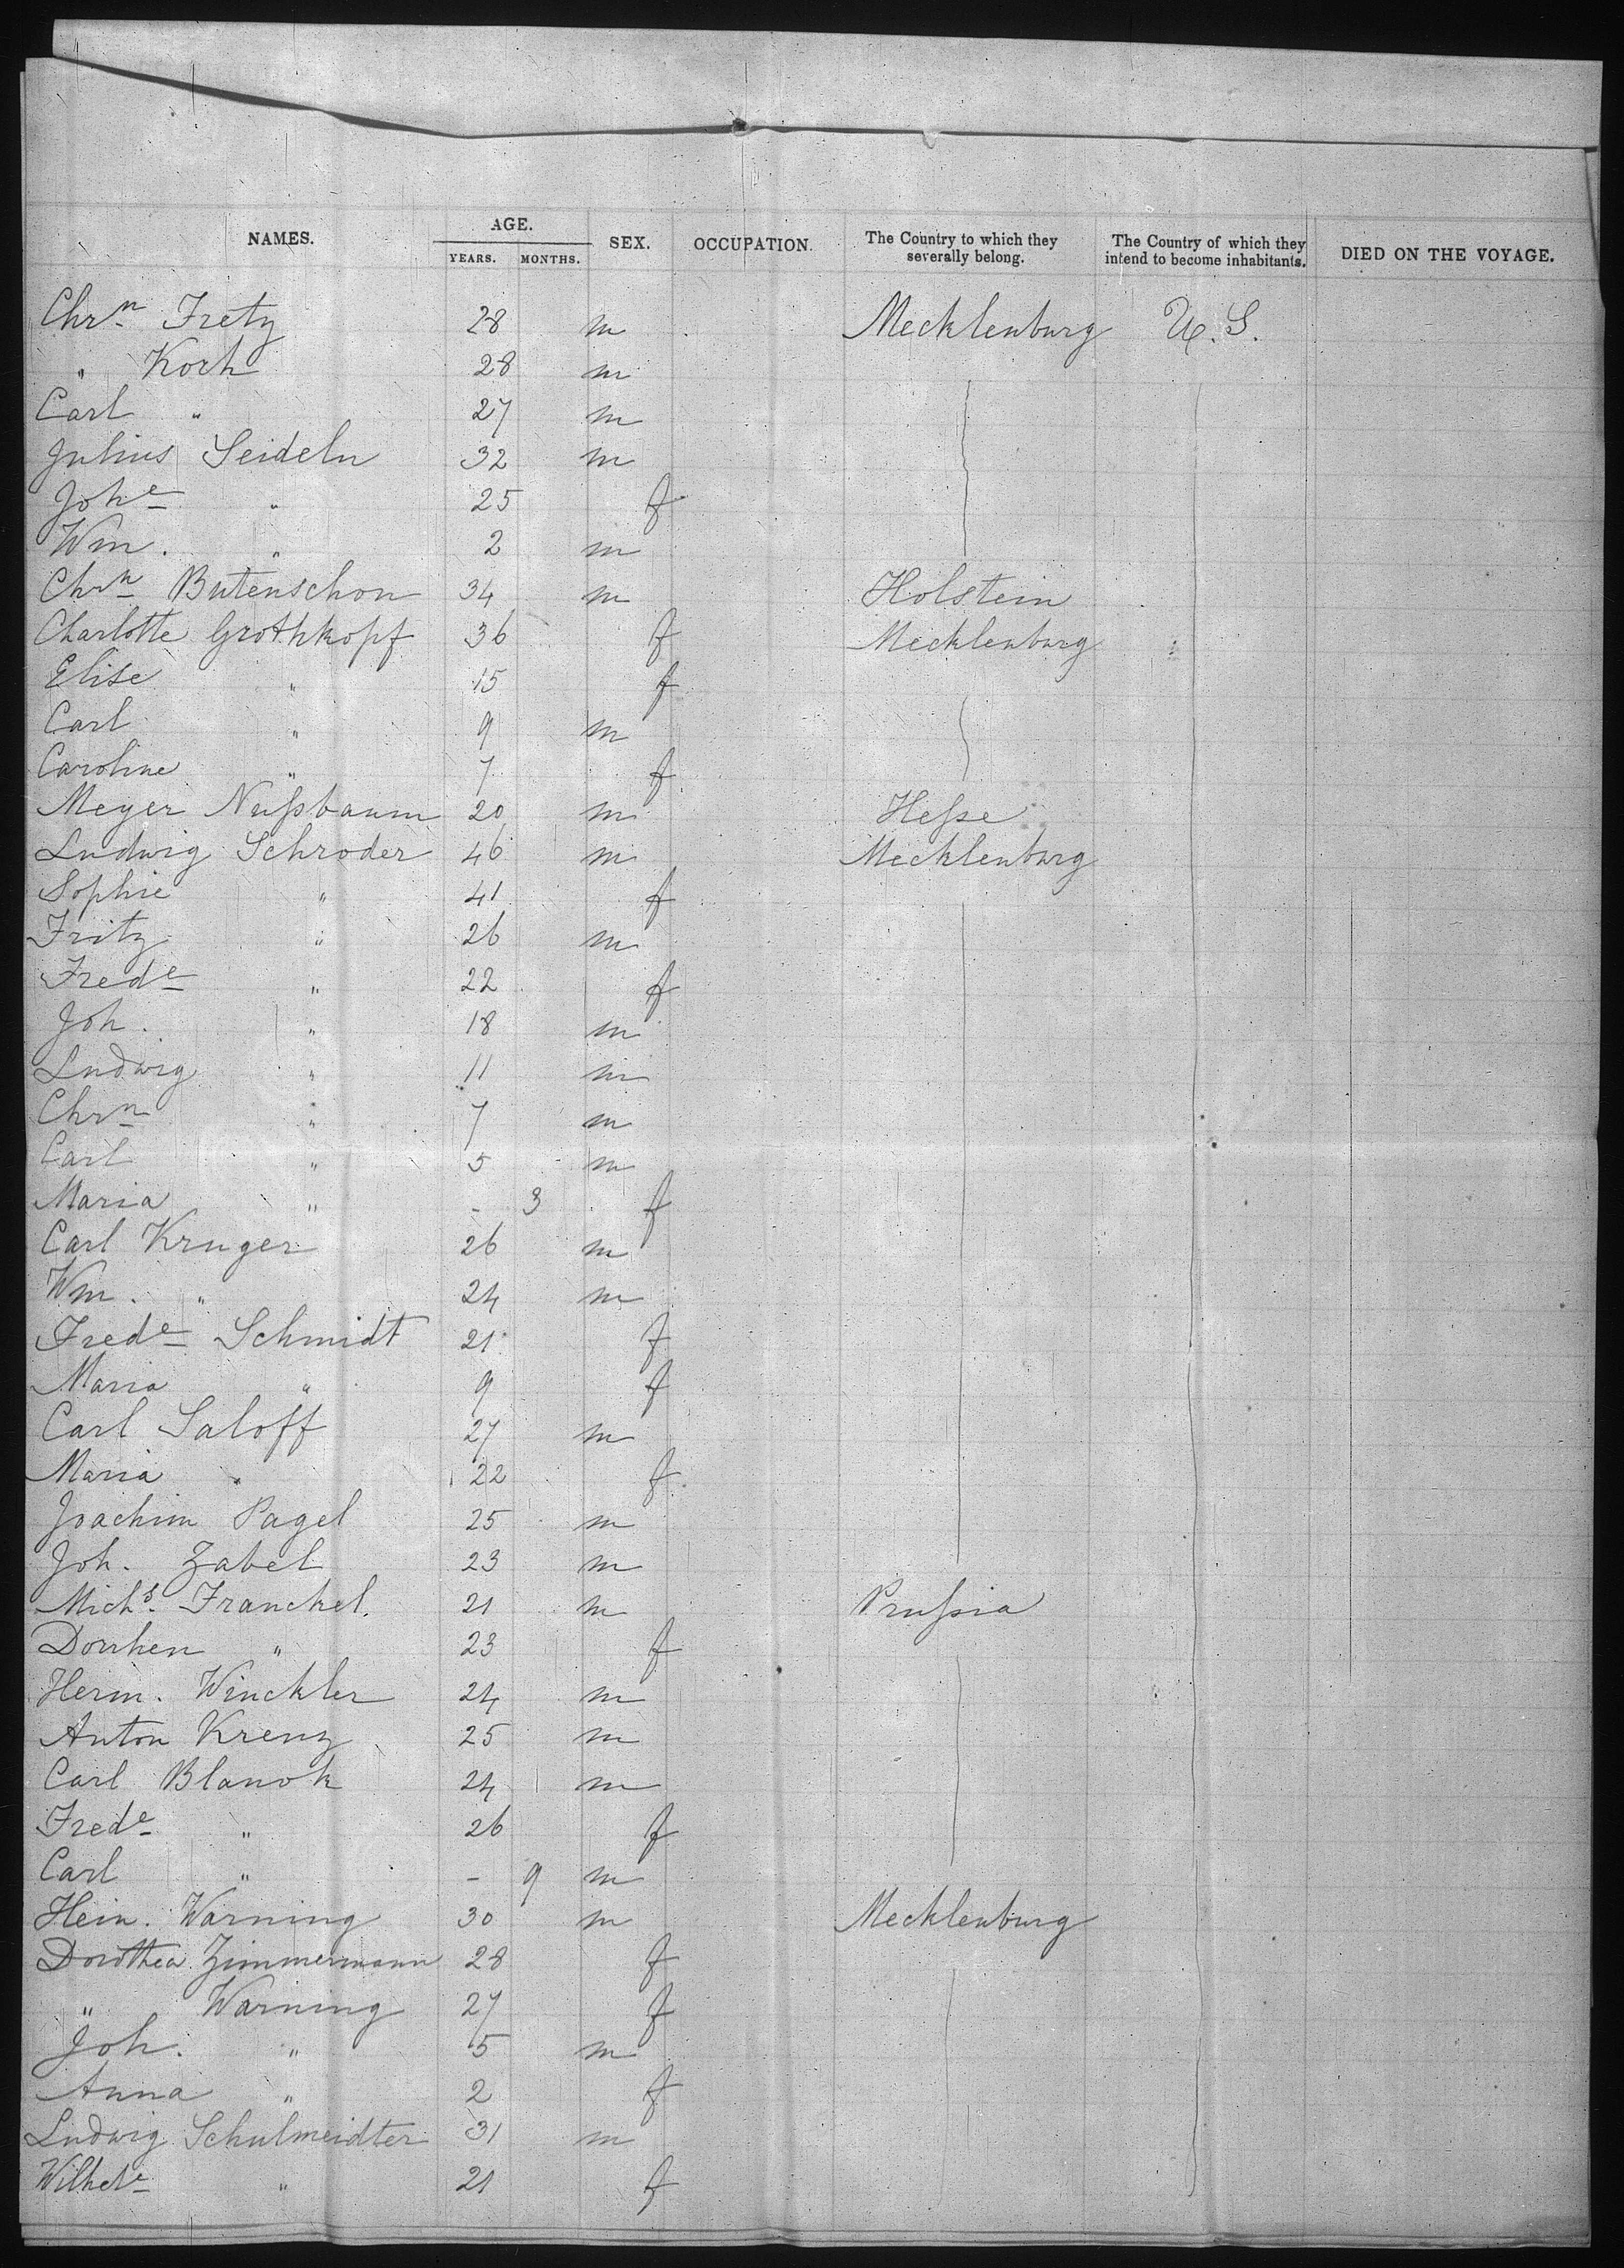 NAMES. AGE. SEX. OCCUPATION. The Country to which they severally belong. The Country of which they intend to become inhabitants. DIED ON THE VOYAGE.
YEARS. MONTHS.
Chrn Fretz 28 m Mecklenburg U.S.
" Koch 28 m
Carl " 27 m
Julius Seideln 32 m
Johe " 25 f
Wm. " 2 m
Chrn Butenschon 34 m Holstein
Charlotte Grothkopf 36 f Mecklenburg
Elise " 15 f
Carl " 9 m
Caroline " 7 f
Meyer Nußbaum 20 m Heße
Ludwig Schroder 46 m Mecklenburg
Sophie " 41 f
Fritz " 26 m
Frede " 22 f
Joh. " 18 m
Ludwig " 11 m
Chrn " 7 m
Carl " 5 m
Maria " - 3 f
Carl Kruger 26 m
Wm. " 24 m
Frede Schmidt 21 f
Maria " 9 f
Carl Saloff 27 m
Maria " 22 f
Joachim Pagel 25 m
Joh. Zabel 23 m
Michs. Franckel. 21 m Prußia
Dorchen " 23 f
Herm. Winckler 24 m
Anton Krenz 25 m
Carl Blanok 24 m
Frede " 26 f
Carl " - 9 m
Hein. Warning 30 m Mecklenburg
Dorothea Zimmermann 28 f
" Warning 27 f
Joh. " 5 m
Anna " 2 f
Ludwig Schulmeidter 31 m
Wilhele " 21 f